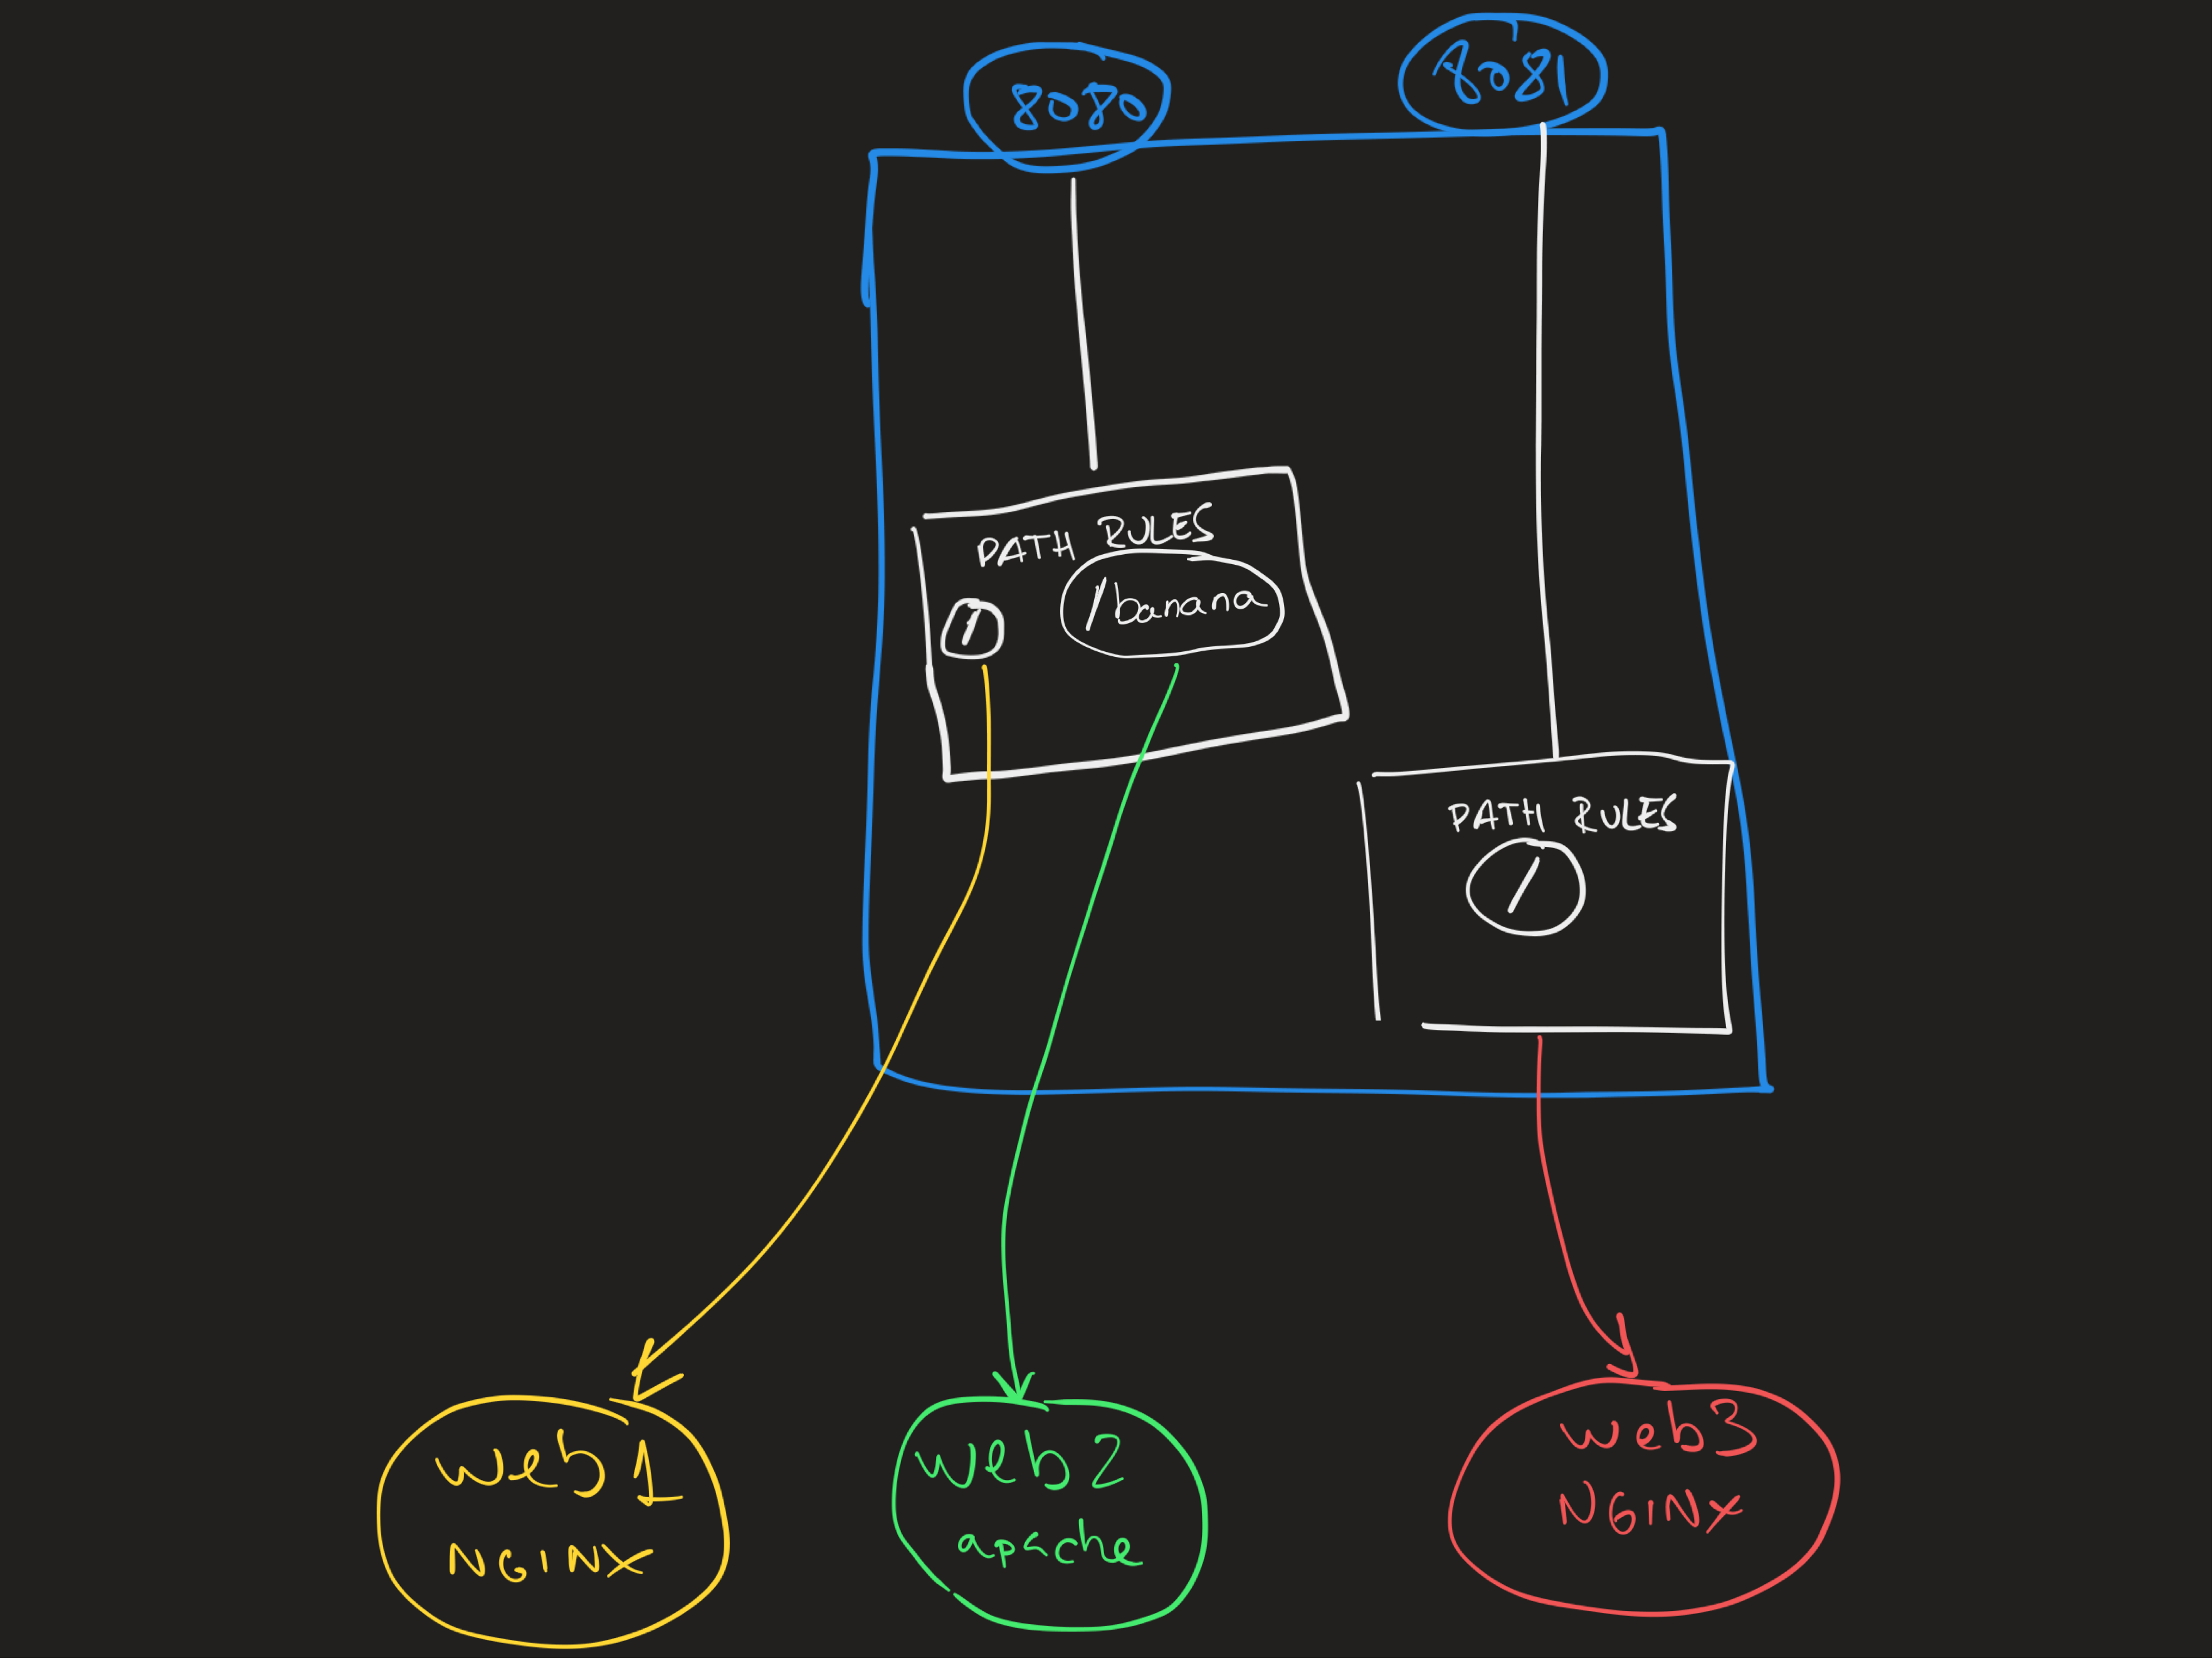 8080
8081
PATH RULES
/
/banana
PATH RULES
/
web1
NGINX
web2
apache
web3
NGINX